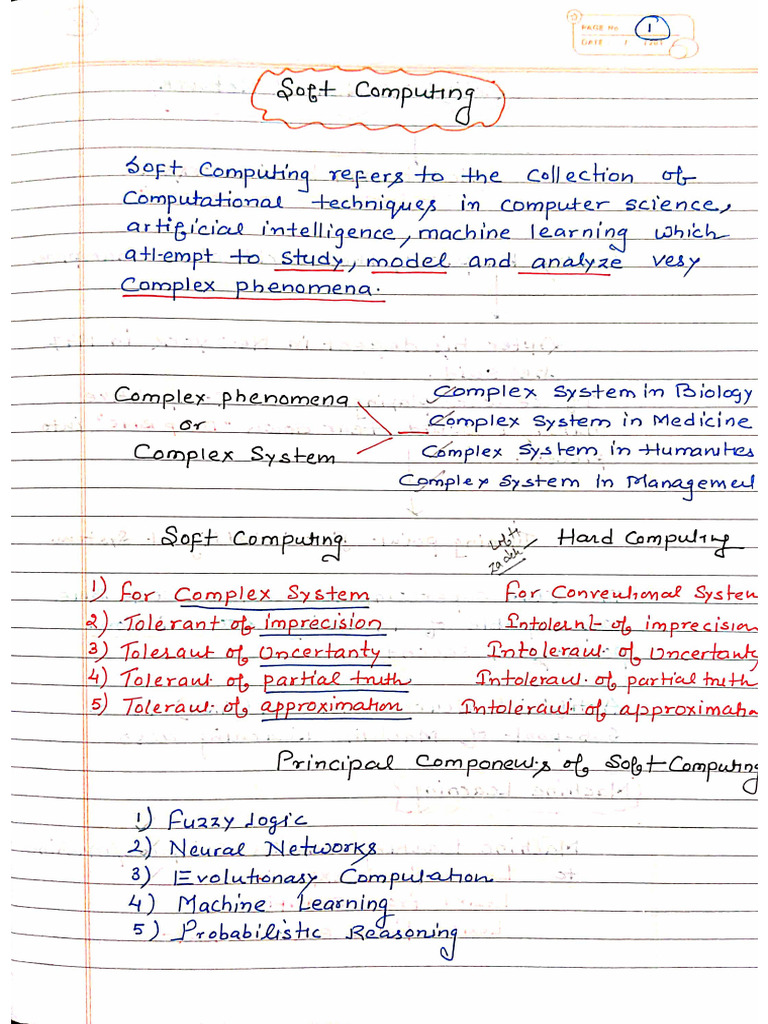 PAGE No. 1
DATE
Soft Computing
Soft Computing refers to the collection of
Computational techniques in computer science,
artificial intelligence, machine learning which
attempt to study, model and analyze very
Complex phenomena.
Complex System in Biology
Complex phenomena
Complex System in Medicine
or
Complex System in Humanities
Complex System
Complex System in Management
Soft Computing Lotfi Zadeh Hard Computing
1) For Complex System For Conventional System
2) Tolerant of imprecision Intolernt of imprecision
3) Tolerant of Uncertanty Intolerant of Uncertanty
4) Tolerant of partial truth Intolerant of partial truth
5) Tolerant of approximation Intolerant of approximation
Principal Components of Soft Computing
1) Fuzzy Logic
2) Neural Networks
3) Evolutionary Computation
4) Machine Learning
5) Probabilistic Reasoning